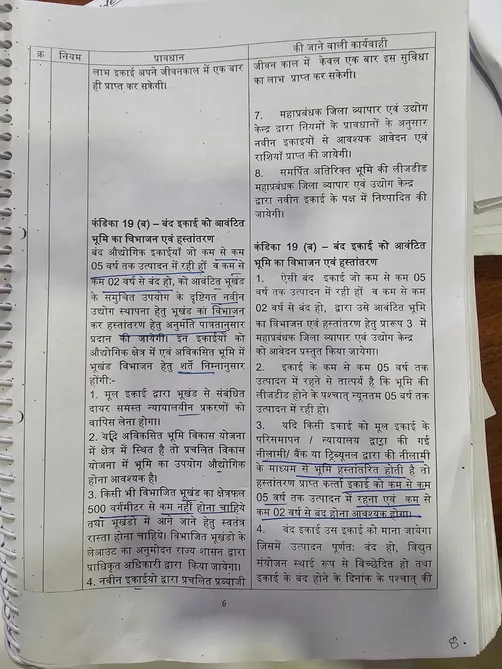 क्र
नियम
प्रावधान
की जाने वाली कार्यवाही
लाभ इकाई अपने जीवनकाल में एक बार
ही प्राप्त कर सकेगी।
कंडिका 19 (ब) – बंद इकाई को आवंटित
भूमि का विभाजन एवं हस्तांतरण
बंद औद्योगिक इकाईयों जो कम से कम
05 वर्ष तक उत्पादन में रही हों व कम से
कम 02 वर्ष से बंद हो, को आवंटित भूखंड
के समुचित उपयोग के दृष्टिगत नवीन
उद्योग स्थापना हेतु भूखंड का विभाजन
कर हस्तांतरण हेतु अनुमति पात्रतानुसार
प्रदान की जायेगी। इन इकाईयों को
औद्योगिक क्षेत्र में एवं अविकसित भूमि में
भूखंड विभाजन हेतु शर्ते निम्नानुसार
होंगी:-
1. मूल इकाई द्वारा भूखण्ड से संबंधित
दायर समस्त न्यायालयीन प्रकरणों को
वापिस लेना होगा।
2. यदि अविकसित भूमि विकास योजना
में क्षेत्र में स्थित है तो प्रचलित विकास
योजना में भूमि का उपयोग औद्योगिक
होना आवश्यक है।
3. किसी भी विभाजित भूखंड का क्षेत्रफल
500 वर्गमीटर से कम नहीं होना चाहिये
तथा भूखंडो में आने जाने हेतु स्वतंत्र
रास्ता होना चाहिये। विभाजित भूखंडो के
लेआउट का अनुमोदन राज्य शासन द्वारा
प्राधिकृत अधिकारी द्वारा किया जायेगा।
4. नवीन इकाईयो द्वारा प्रचलित प्रब्याजी
जीवन काल में केवल एक बार इस सुविधा
का लाभ प्राप्त कर सकेगी।
7. महाप्रबंधक जिला व्यापार एवं उद्योग
केन्द्र द्वारा नियमों के प्रावधानों के अनुसार
नवीन इकाइयों से आवश्यक आवेदन एवं
राशियाँ प्राप्त की जायेगी।
8. समर्पित अतिरिक्त भूमि की लीजडीड
महाप्रबंधक जिला व्यापार एवं उद्योग केन्द्र
द्वारा नवीन इकाई के पक्ष में निष्पादित की
जायेगी।
कंडिका 19 (ब) – बंद इकाई को आवंटित
भूमि का विभाजन एवं हस्तांतरण
1. ऐसी बंद इकाई जो कम से कम 05
वर्ष तक उत्पादन में रही हों व कम से कम
02 वर्ष से बंद हो, द्वारा उसे आवंटित भूमि
का विभाजन एवं हस्तांतरण हेतु प्रारूप 3 में
महाप्रबंधक जिला व्यापार एवं उद्योग केन्द्र
को आवेदन प्रस्तुत किया जायेगा।
2. इकाई के कम से कम 05 वर्ष तक
उत्पादन में रहने से तात्पर्य है कि भूमि की
लीजडीड होने के पश्चात् न्यूनतम 05 वर्ष तक
उत्पादन में रही हो।
3. यदि किसी इकाई को मूल इकाई के
परिसमापन / न्यायालय द्वारा की गई
नीलामी/ बैंक या ट्रिब्यूनल द्वारा की नीलामी
के माध्यम से भूमि हस्तांतरित होती है तो
हस्तांतरण प्राप्त कर्त्ता इकाई को कम से कम
05 वर्ष तक उत्पादन में रहना एवं कम से
कम 02 वर्ष से बंद होना आवश्यक होगा।
4. बंद इकाई उस इकाई को माना जायेगा
जिसमें उत्पादन पूर्णतः बंद हो, विद्युत
संयोजन स्थाई रूप से विच्छेदित हो तथा
इकाई के बंद होने के दिनांक के पश्चात् की
6
8.